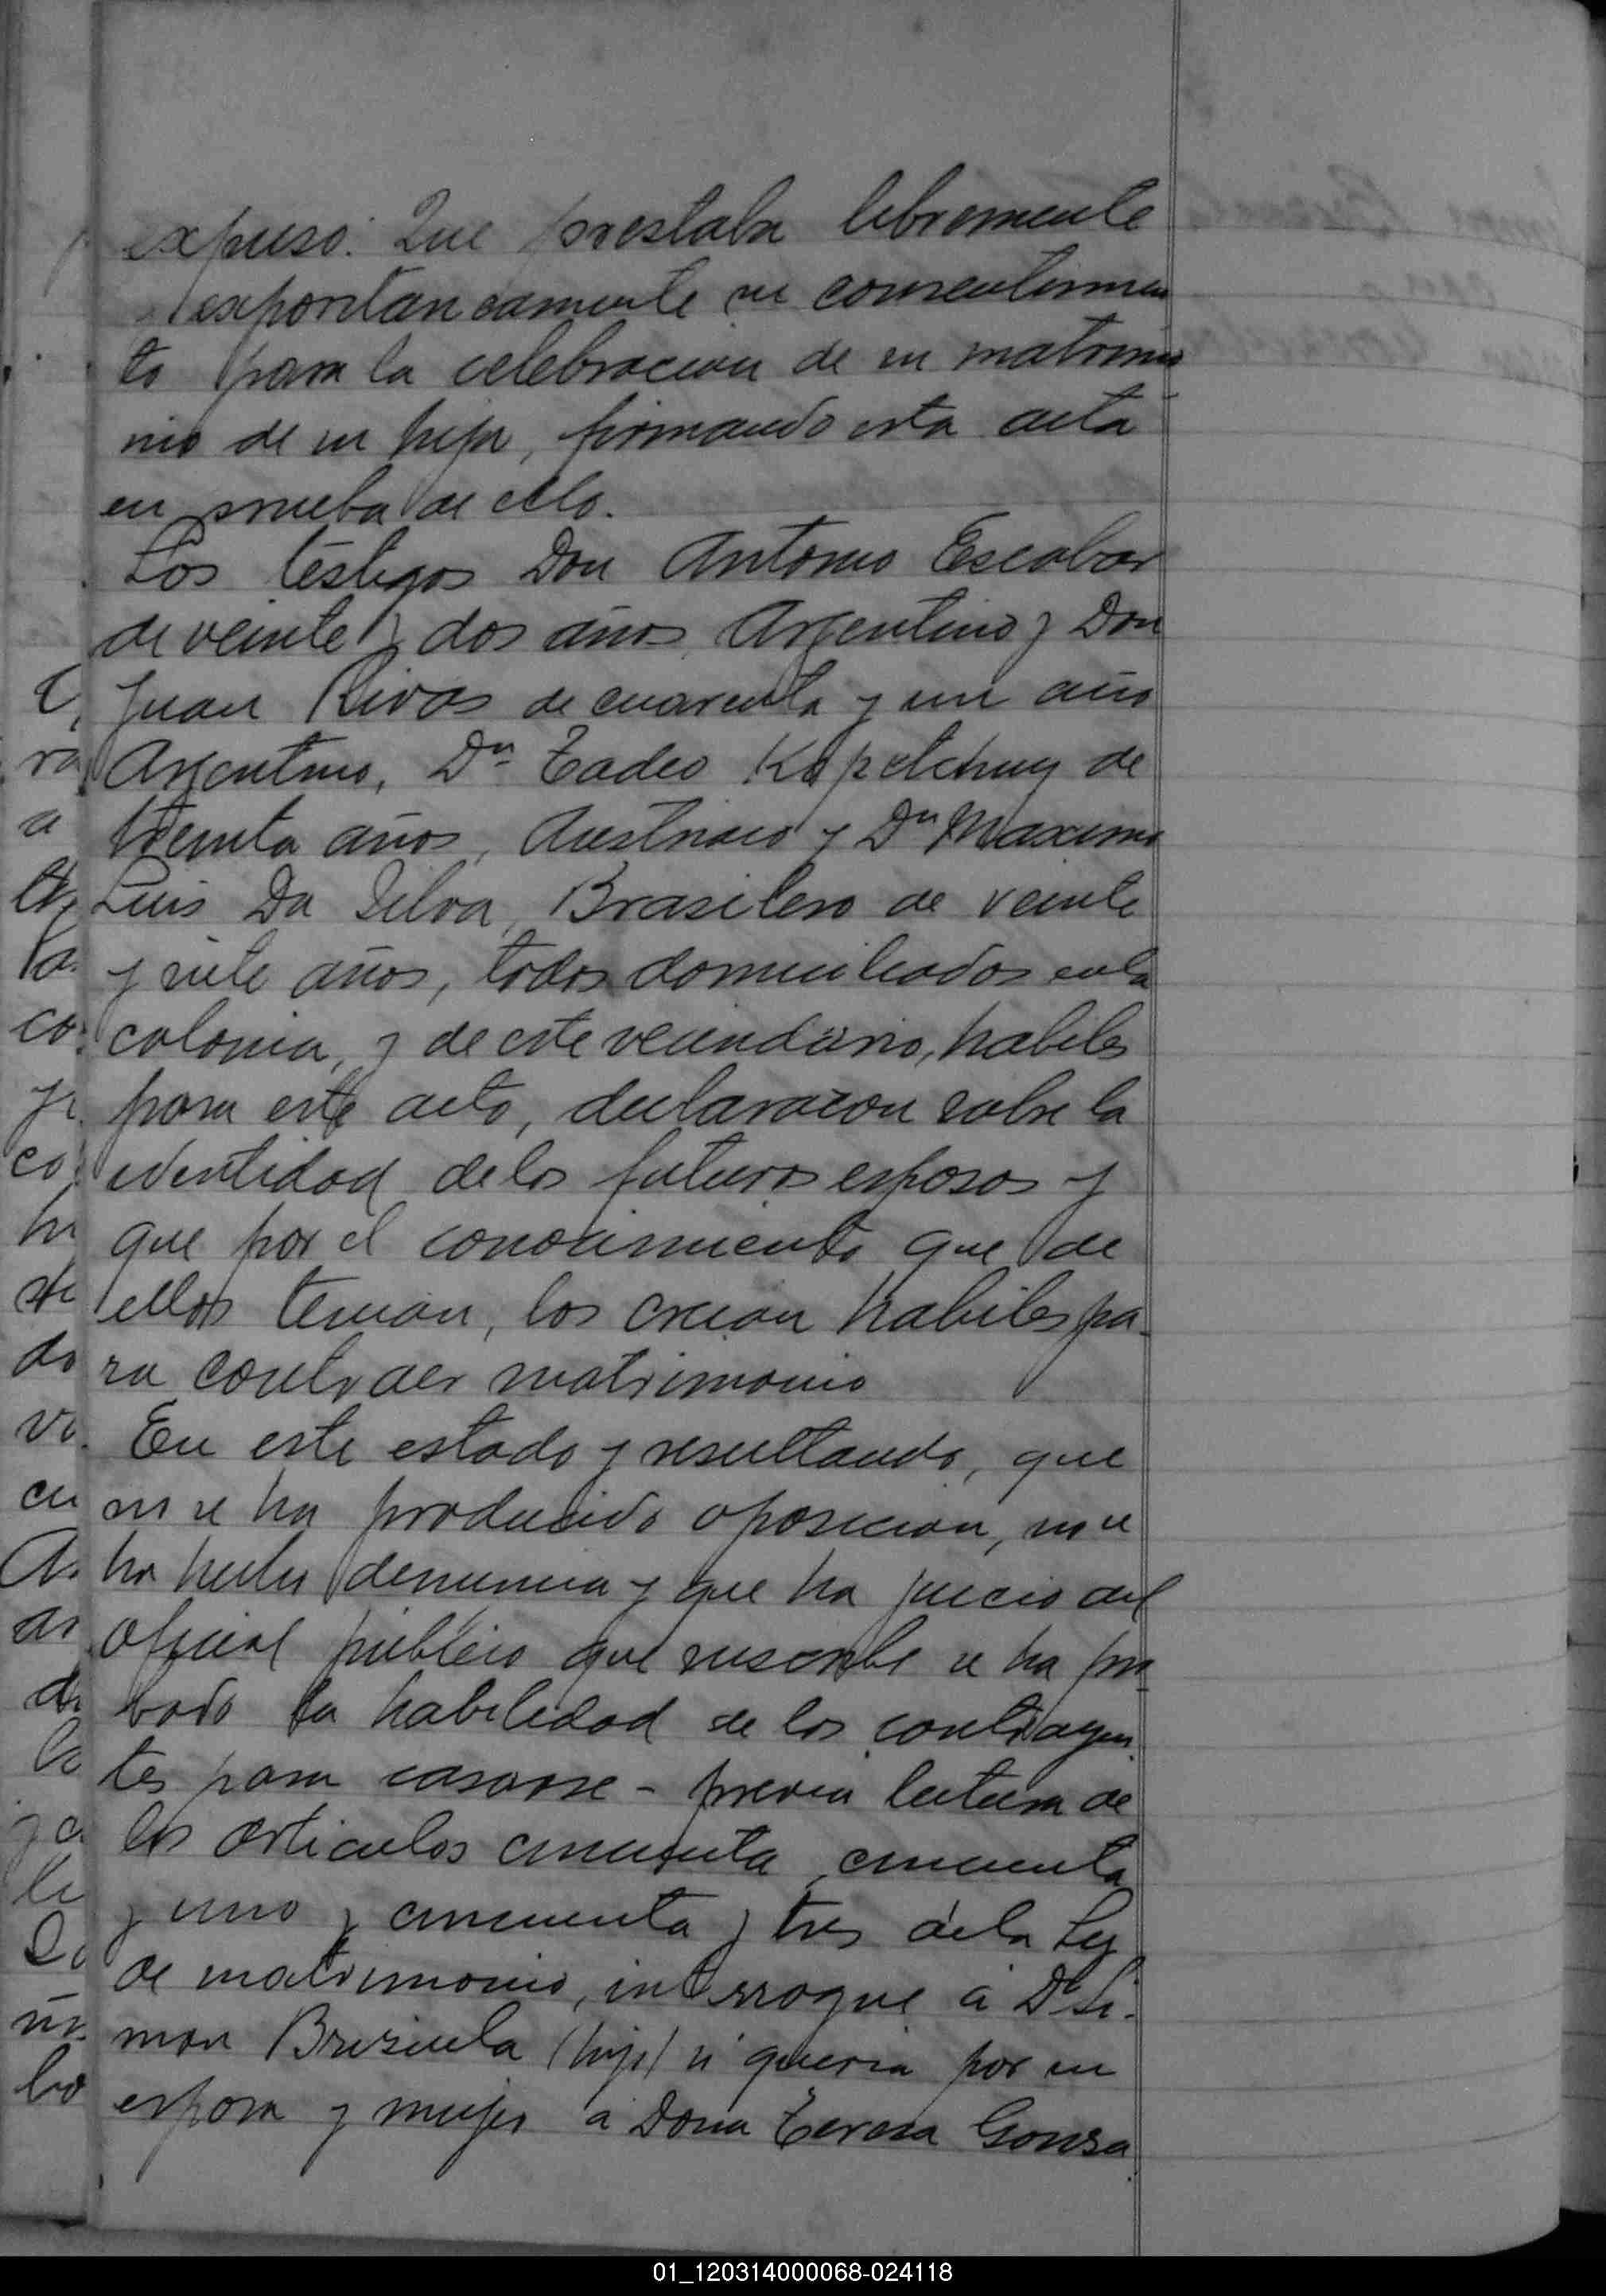 expuso: Que prestaba libremente
espontaneamente su consentimien
to para la celebracion de su matrimo
nio de su hija, firmando esta acta
en prueba de ello.
Los testigos Don Antonio Escobar
de veinte y dos años Argentino y Don
Juan Rivas de cuarenta y un año
Argentino, Dn Tadeo Kopetchuy de
treinta años, Austriaco y Dn Maximo
Luis Da Silva, Brasilero de veinte
y siete años, todos domiciliados en la
colonia, y de este vecindario, habiles
para este acto, declararon sobre la
identidad de los futuros esposos y
que por el conocimiento que de
ellos tenian, los creian habiles pa-
ra contraer matrimonio
En este estado y resultando, que
no se ha producido oposicion, no se
ha hecho denuncia y que ha juicio del
oficial publico que suscribe se ha pro
bado la habilidad de los contrayen
tes para casarse - previa lectura de
los articulos cincuenta, cincuenta
y uno y cincuenta y tres de la Ley
de matrimonio, interrogue a Dn Si-
mon Brizuela (hijo) si queria por su
esposa y mujer a Doña Teresa Gonza
01_120314000068-024118